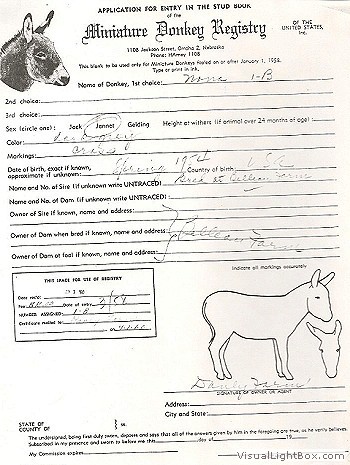 APPLICATION FOR ENTRY IN THE STUD BOOK
of the
Miniature Donkey Registry
OF THE
UNITED STATES,
Inc.
1108 Jackson Street, Omaha 2, Nebraska
Phone: HArney 1108
This blank to be used only for Miniature Donkeys foaled on or after January 1, 1958.
Type or print in ink.
Name of Donkey, 1st choice: None 1-B
2nd choice:
3rd choice:
Sex (circle one): Jack Jennet Gelding Height at withers (if animal over 24 months of age):
Color: dark grey
Markings: cross
Date of birth, exact if known,
approximate if unknown: Spring Country of birth:
Name and No. of Sire (if unknown write UNTRACED) Bred at Farm
Name and No. of Dam (if unknown write UNTRACED)
Owner of Sire if known, name and address:
Owner of Dam when bred if known, name and address: Farm
Owner of Dam at foal if known, name and address:
THIS SPACE FOR USE OF REGISTRY
Date rec'd:
Fee Date of entry
NUMBER ASSIGNED: 1-B
Certificate mailed to:
on
Indicate all markings accurately
Danby Farm
SIGNATURE OF OWNER OR AGENT
Address:
City and State:
STATE OF
COUNTY OF } ss.
The undersigned, being first duly sworn, deposes and says that all of the answers given by him in the foregoing are true, as he verily believes.
Subscribed in my presence and sworn to before me this day of 19
My Commission expires
VisualLightBox.com